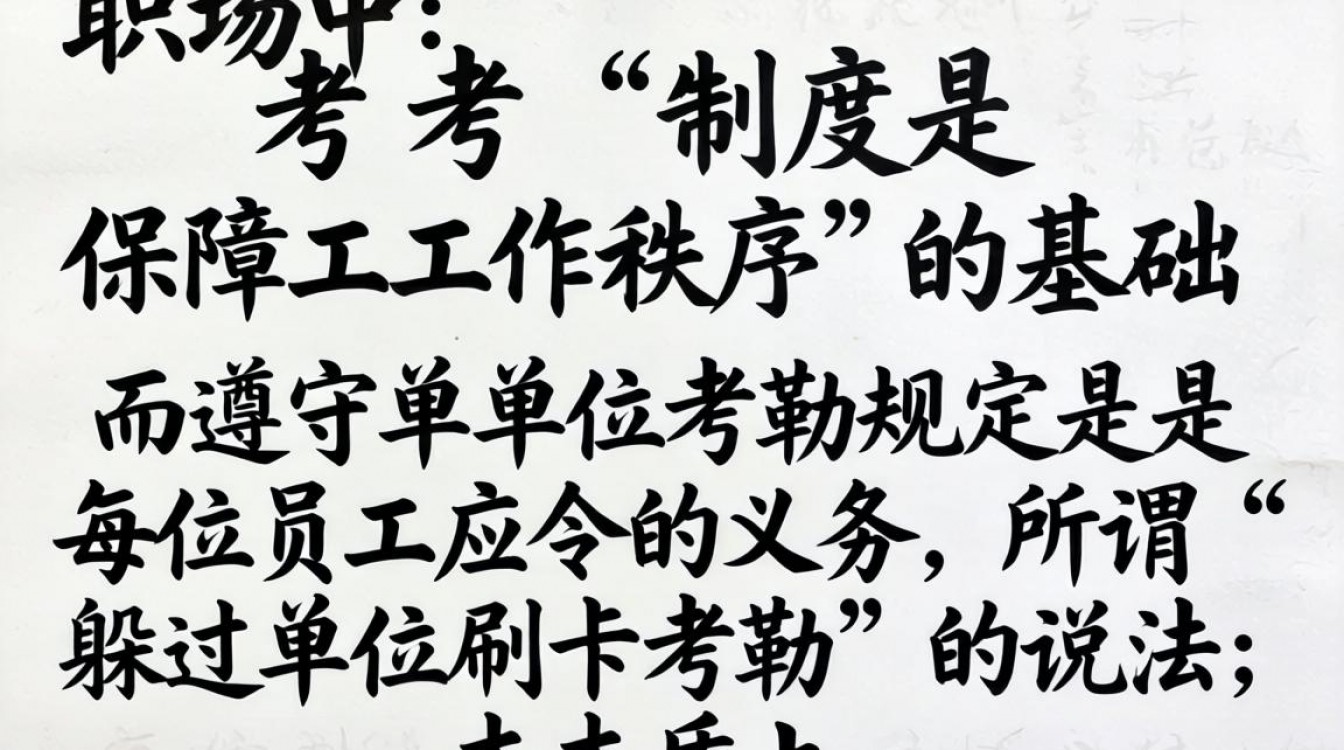 职场中：
考考“制度是
保障工工作秩序”的基础
而遵守单单位考勤规定是是
每位员工应令的义务，所谓“
躲过单位刷卡考勤”的说法；
本本质上